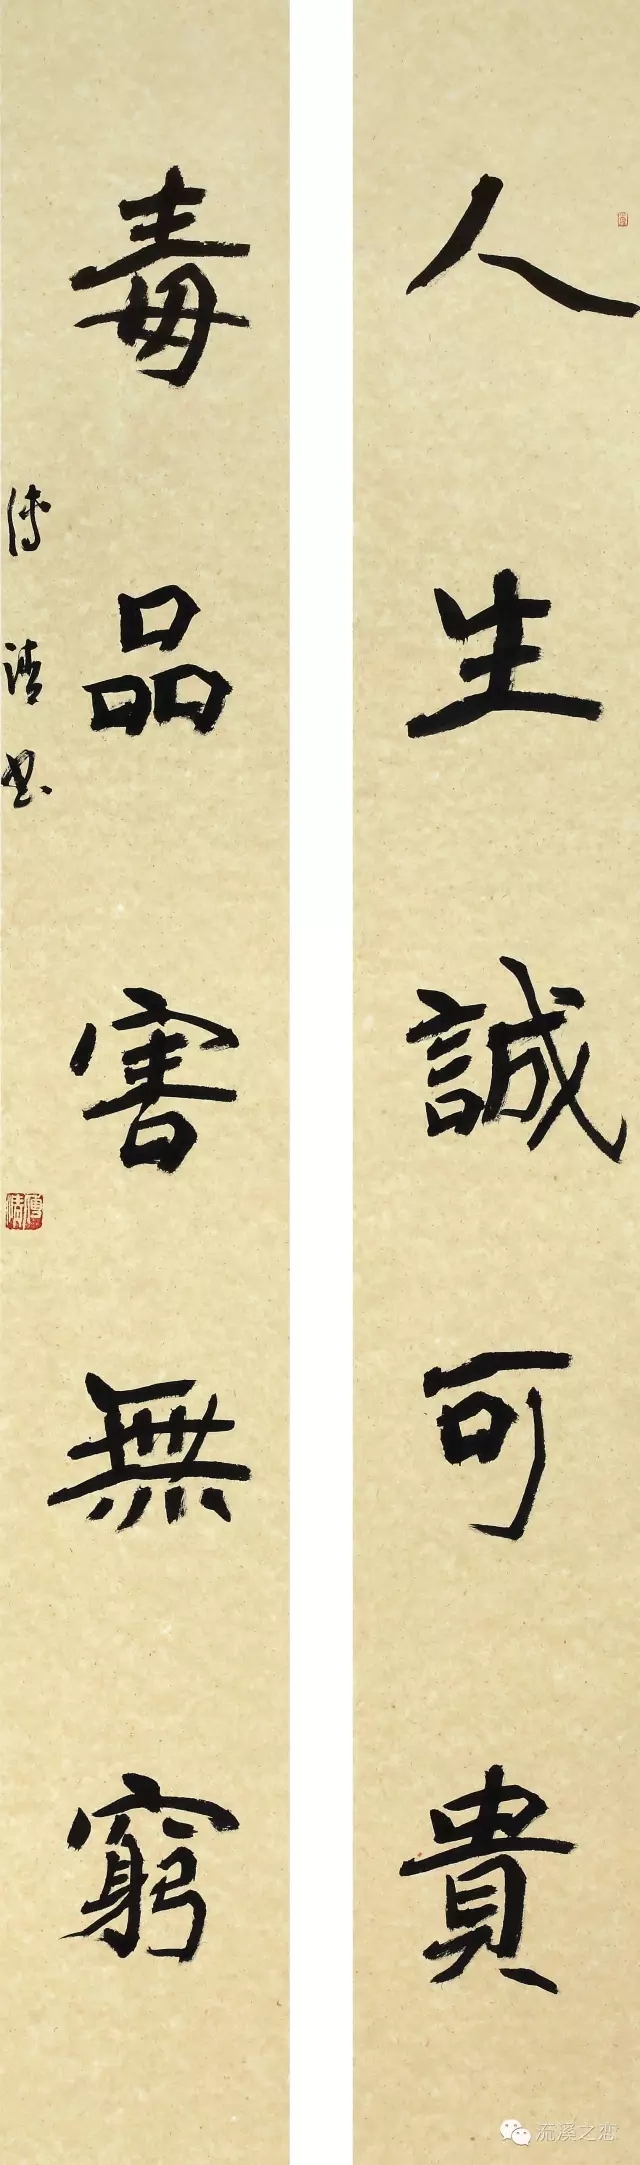 人生誠可貴
毒品害無窮
傅清書
傅清
流溪之恋